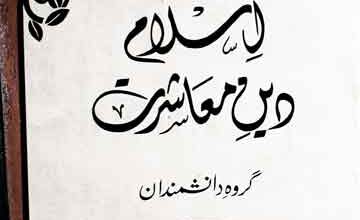 اِسلام
دینِ معاشرت
گروہ دانشمندان